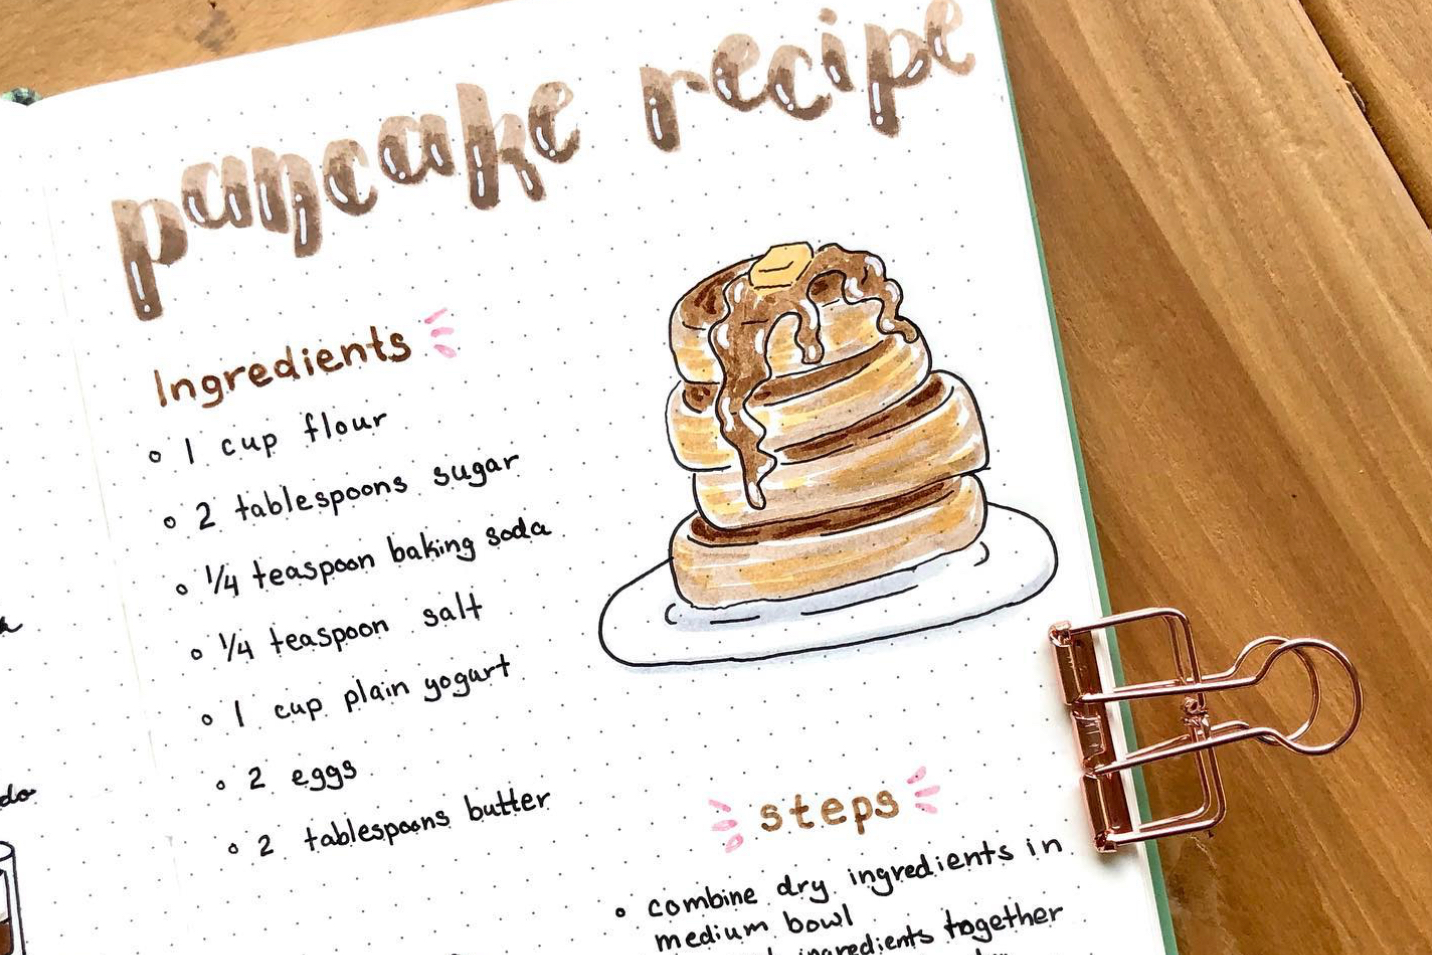 pancake recipe
Ingredients
1 cup flour
2 tablespoons sugar
1/4 teaspoon baking soda
1/4 teaspoon salt
1 cup plain yogurt
2 eggs
2 tablespoons butter
steps
combine dry ingredients in
medium bowl
ingredients together